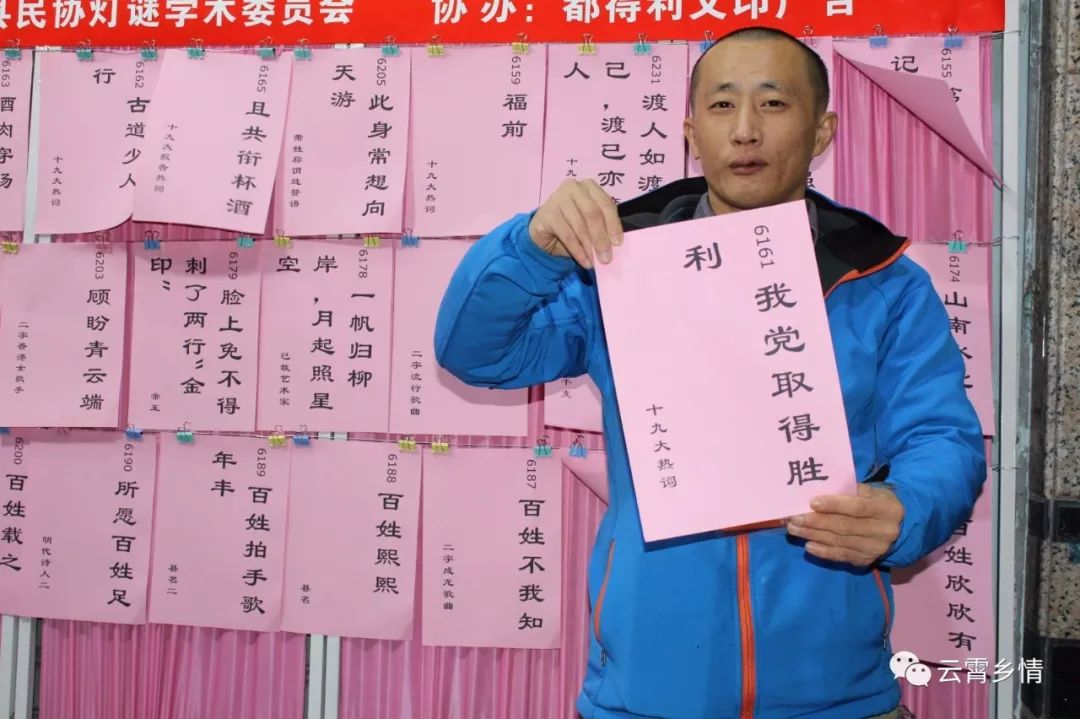 县民协灯谜学术委员会 协办：都得利文印广告
6163
酒肉字场
6162
古道少人
行
十九大热词
6165
且共衔杯酒
十九大报告热词
6205
此身常想向
天游
带姓称谓连誉语
6159
福前
十九大热词
6231
渡人如渡
己，渡已亦
人
十九
6155
记
6161
我党取得胜
利
十九大热词
6203
顾盼青云端
二字香港女歌手
6179
脸上免不得
刺了两行“金
印”
帝王
6178
一帆归柳
岸，月起照星
空
已故艺术家
二字流行歌曲
6174
山南水
6200
百姓载之
6190
所愿百姓足
明代诗人二
6189
百姓拍手歌
年丰
县名二
6188
百姓熙熙
县名
6187
百姓不我知
二字成龙歌曲
百姓欣欣有
云霄乡情